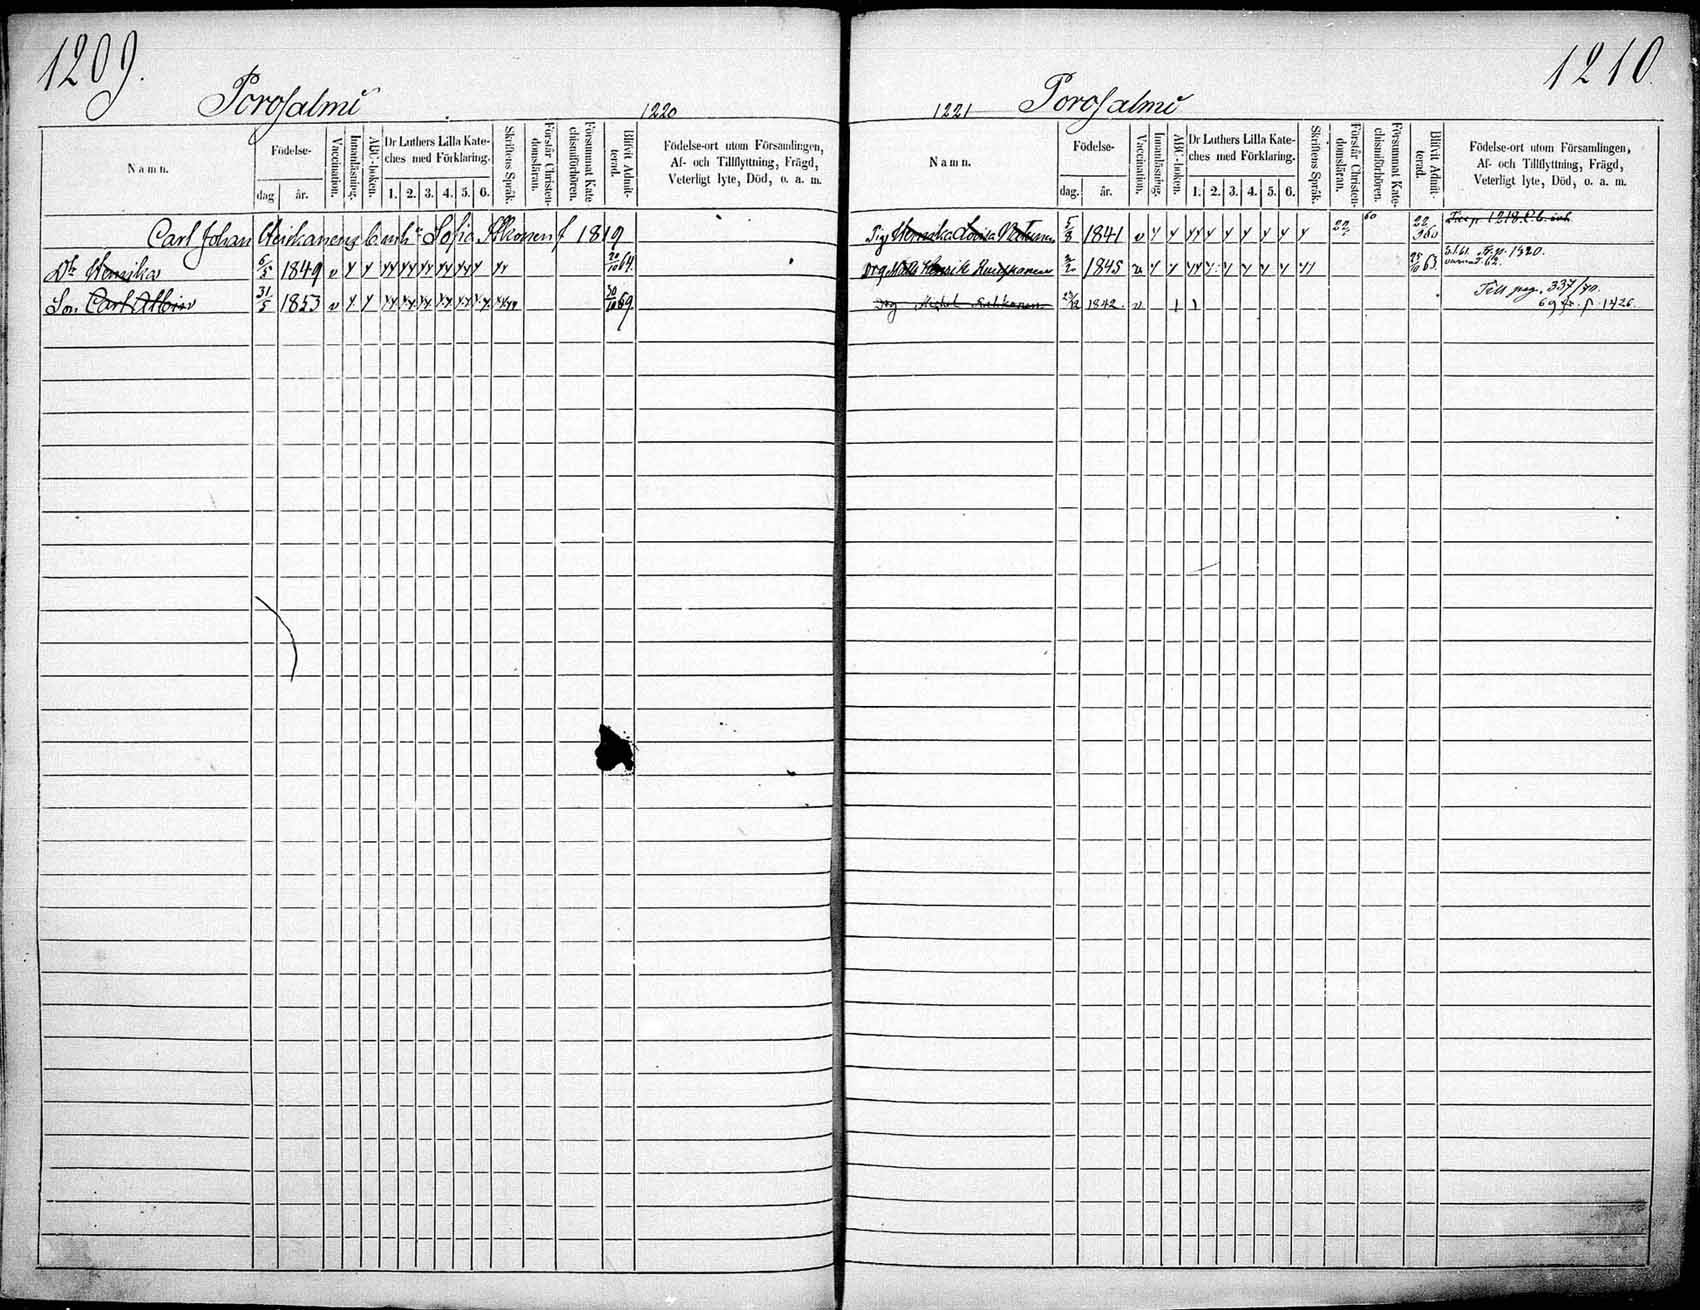 1209.
Porosalmi
1220
Namn.
Födelse-
dag
år.
Vaccination.
Innanläsning.
ABC-boken.
Dr Luthers Lilla Kate-
ches med Förklaring.
1. 2. 3. 4. 5. 6.
Skriftens Språk.
Förstår Christen-
domsläran.
Försummat Kate
chismiförhören.
Blifvit Admit-
terad.
Födelse-ort utom Församlingen,
Af- och Tillflyttning, Frägd,
Veterligt lyte, Död, o. a. m.
Carl Johan Heiskanens Enk: Sofia f 1819
Dr Henrika 6/5 1849 v 20/10 64.
Son Carl Albin 31/5 1853 v 30/10 69.
1210.
1221
Porosalmi
Namn.
Födelse-
dag.
år.
Vaccination.
Innanläsning.
ABC-boken.
Dr Luthers Lilla Kate-
ches med Förklaring.
1. 2. 3. 4. 5. 6.
Skriftens Språk.
Förstår Christen-
domsläran.
Försummat Kate
chismiförhören.
Blifvit Admit-
terad.
Födelse-ort utom Församlingen,
Af- och Tillflyttning, Frägd,
Veterligt lyte, Död, o. a. m.
Pig Henrika Lovisa 5/8 1841 v 22 60
Drg Mats Henrik 1845 v 25/10 63. 1320.
62.
Drg Michel 1842. v Till pag. 337/70.
69 fr. p. 1426.